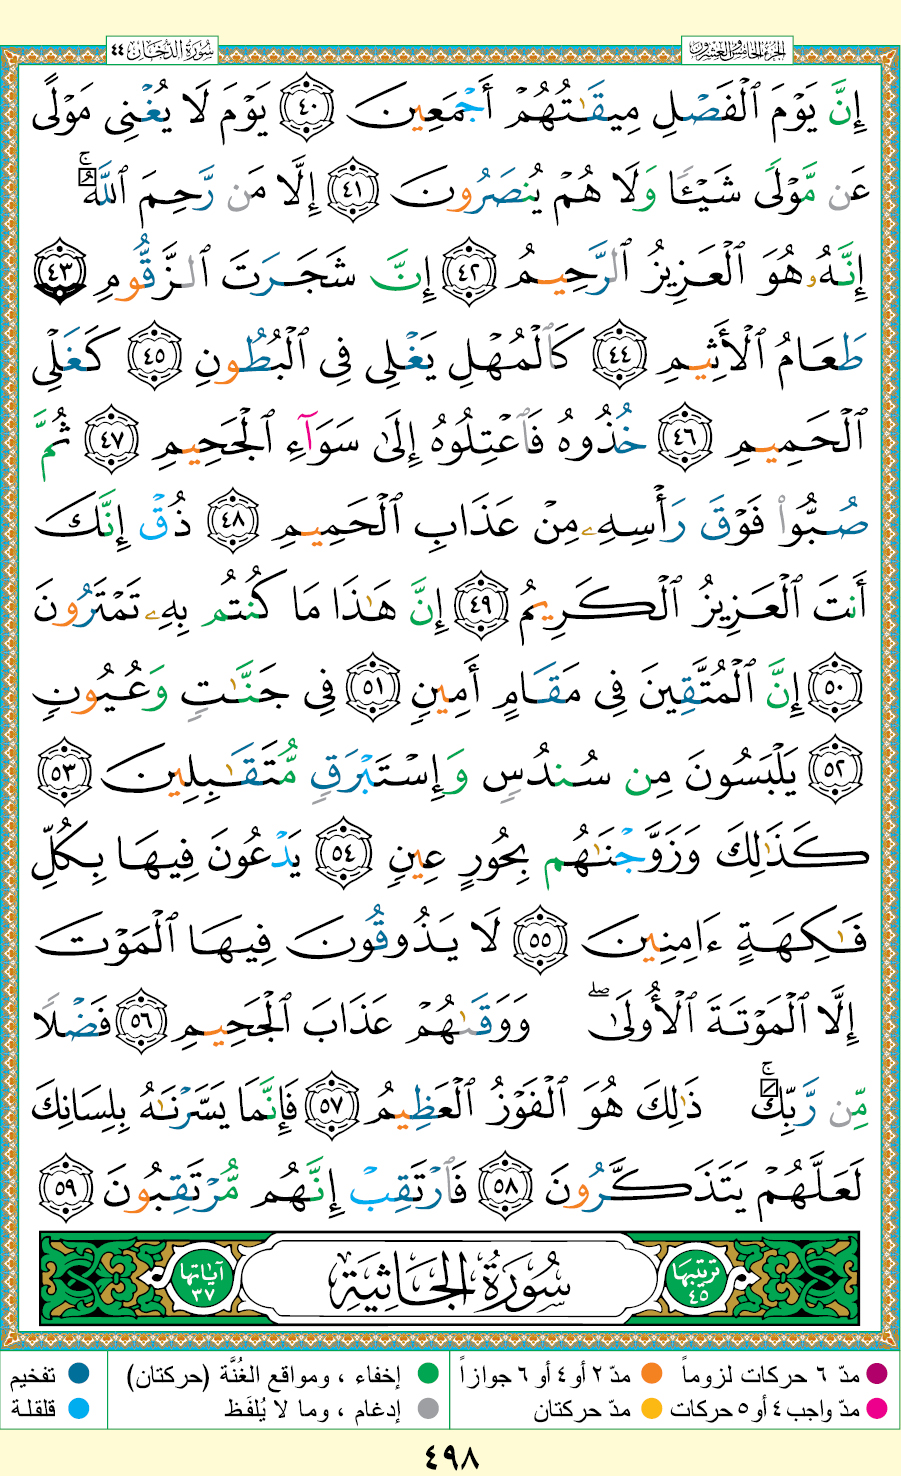 الجزء الخامس والعشرون
سورة الدخان ٤٤
إِنَّ يَوْمَ ٱلْفَصْلِ مِيقَٰتُهُمْ أَجْمَعِينَ ٤٠ يَوْمَ لَا يُغْنِى مَوْلًى
عَن مَّوْلًى شَيْـًٔا وَلَا هُمْ يُنصَرُونَ ٤١ إِلَّا مَن رَّحِمَ ٱللَّهُ ۚ
إِنَّهُۥ هُوَ ٱلْعَزِيزُ ٱلرَّحِيمُ ٤٢ إِنَّ شَجَرَتَ ٱلزَّقُّومِ ٤٣
طَعَامُ ٱلْأَثِيمِ ٤٤ كَٱلْمُهْلِ يَغْلِى فِى ٱلْبُطُونِ ٤٥ كَغَلْىِ
ٱلْحَمِيمِ ٤٦ خُذُوهُ فَٱعْتِلُوهُ إِلَىٰ سَوَآءِ ٱلْجَحِيمِ ٤٧ ثُمَّ
صُبُّوا۟ فَوْقَ رَأْسِهِۦ مِنْ عَذَابِ ٱلْحَمِيمِ ٤٨ ذُقْ إِنَّكَ
أَنتَ ٱلْعَزِيزُ ٱلْكَرِيمُ ٤٩ إِنَّ هَٰذَا مَا كُنتُم بِهِۦ تَمْتَرُونَ
٥٠ إِنَّ ٱلْمُتَّقِينَ فِى مَقَامٍ أَمِينٍ ٥١ فِى جَنَّٰتٍ وَعُيُونٍ
٥٢ يَلْبَسُونَ مِن سُندُسٍ وَإِسْتَبْرَقٍ مُّتَقَٰبِلِينَ ٥٣
كَذَٰلِكَ وَزَوَّجْنَٰهُم بِحُورٍ عِينٍ ٥٤ يَدْعُونَ فِيهَا بِكُلِّ
فَٰكِهَةٍ ءَامِنِينَ ٥٥ لَا يَذُوقُونَ فِيهَا ٱلْمَوْتَ
إِلَّا ٱلْمَوْتَةَ ٱلْأُولَىٰ ۖ وَوَقَىٰهُمْ عَذَابَ ٱلْجَحِيمِ ٥٦ فَضْلًا
مِّن رَّبِّكَ ۚ ذَٰلِكَ هُوَ ٱلْفَوْزُ ٱلْعَظِيمُ ٥٧ فَإِنَّمَا يَسَّرْنَٰهُ بِلِسَانِكَ
لَعَلَّهُمْ يَتَذَكَّرُونَ ٥٨ فَٱرْتَقِبْ إِنَّهُم مُّرْتَقِبُونَ ٥٩
ترتيبها ٤٥ سُورَةُ الجَاثِيَةِ آياتها ٣٧
مدّ ٦ حركات لزوماً مدّ ٢ أو ٤ أو ٦ جوازاً إخفاء ، ومواقع الغُنَّة (حركتان) تفخيم
مدّ واجب ٤ أو ٥ حركات مدّ حركتان إدغام ، وما لا يُلفَظ قلقلة
٤٩٨